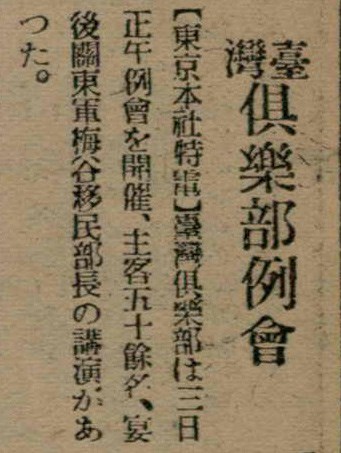 臺灣俱樂部例會
【東京本社特電】臺灣俱樂部は三日
正午例會を開催、主客五十餘名、宴
後關東軍梅谷移民部長の講演があ
つた。